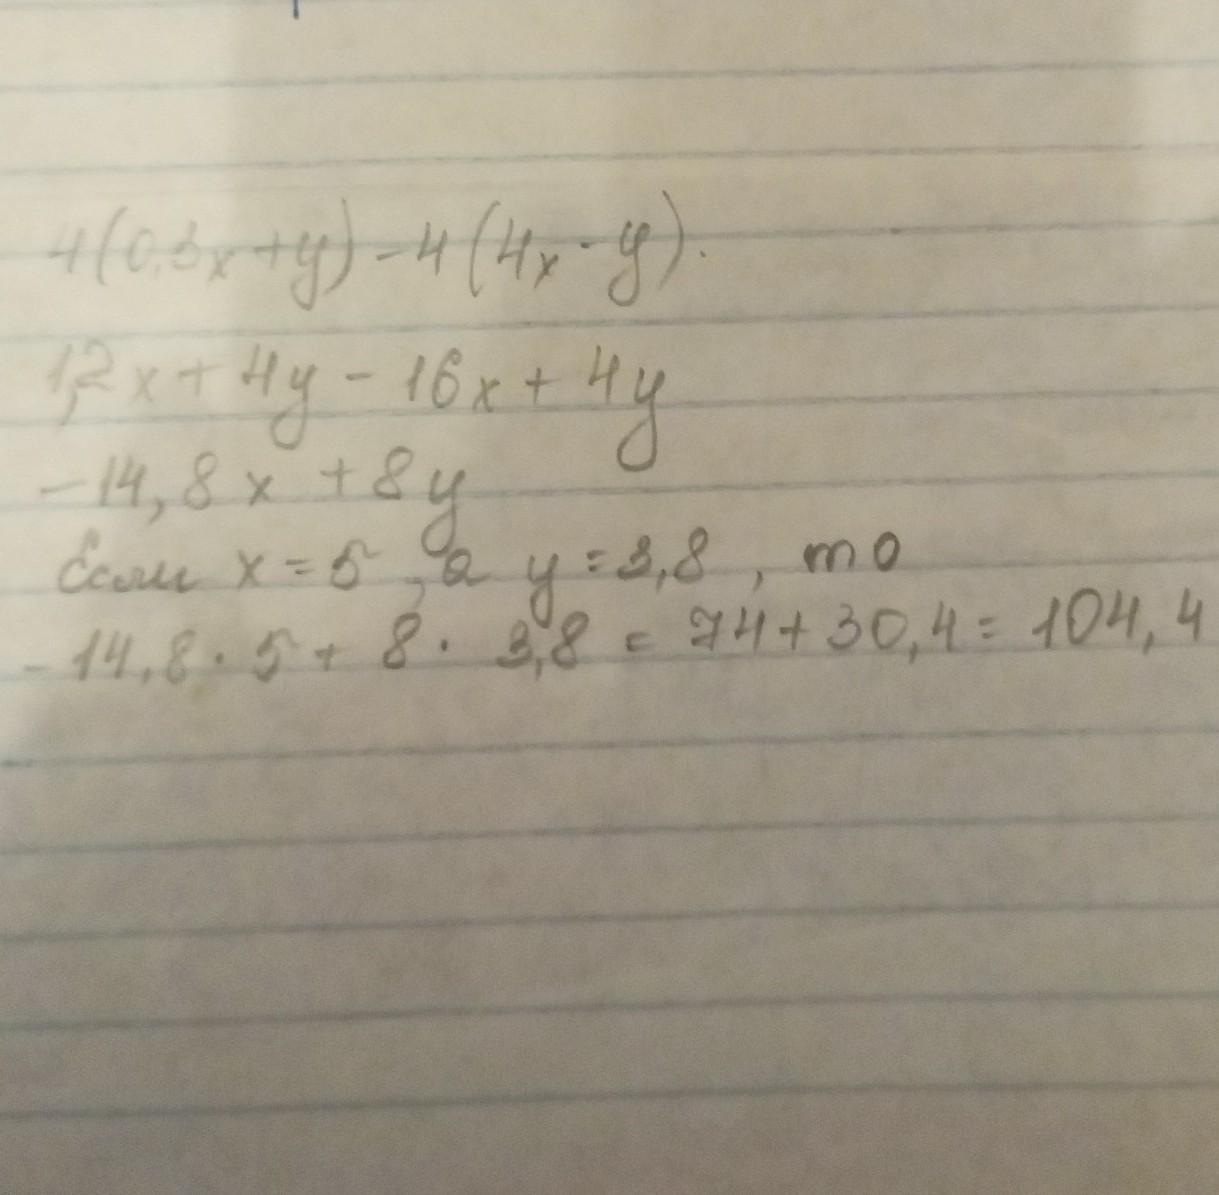 4(0,3x+y)-4(4x-y).
1,2x+4y-16x+4y
-14,8x+8y
Если x=5, а y=3,8, то
-14,8·5+8·3,8=74+30,4=104,4